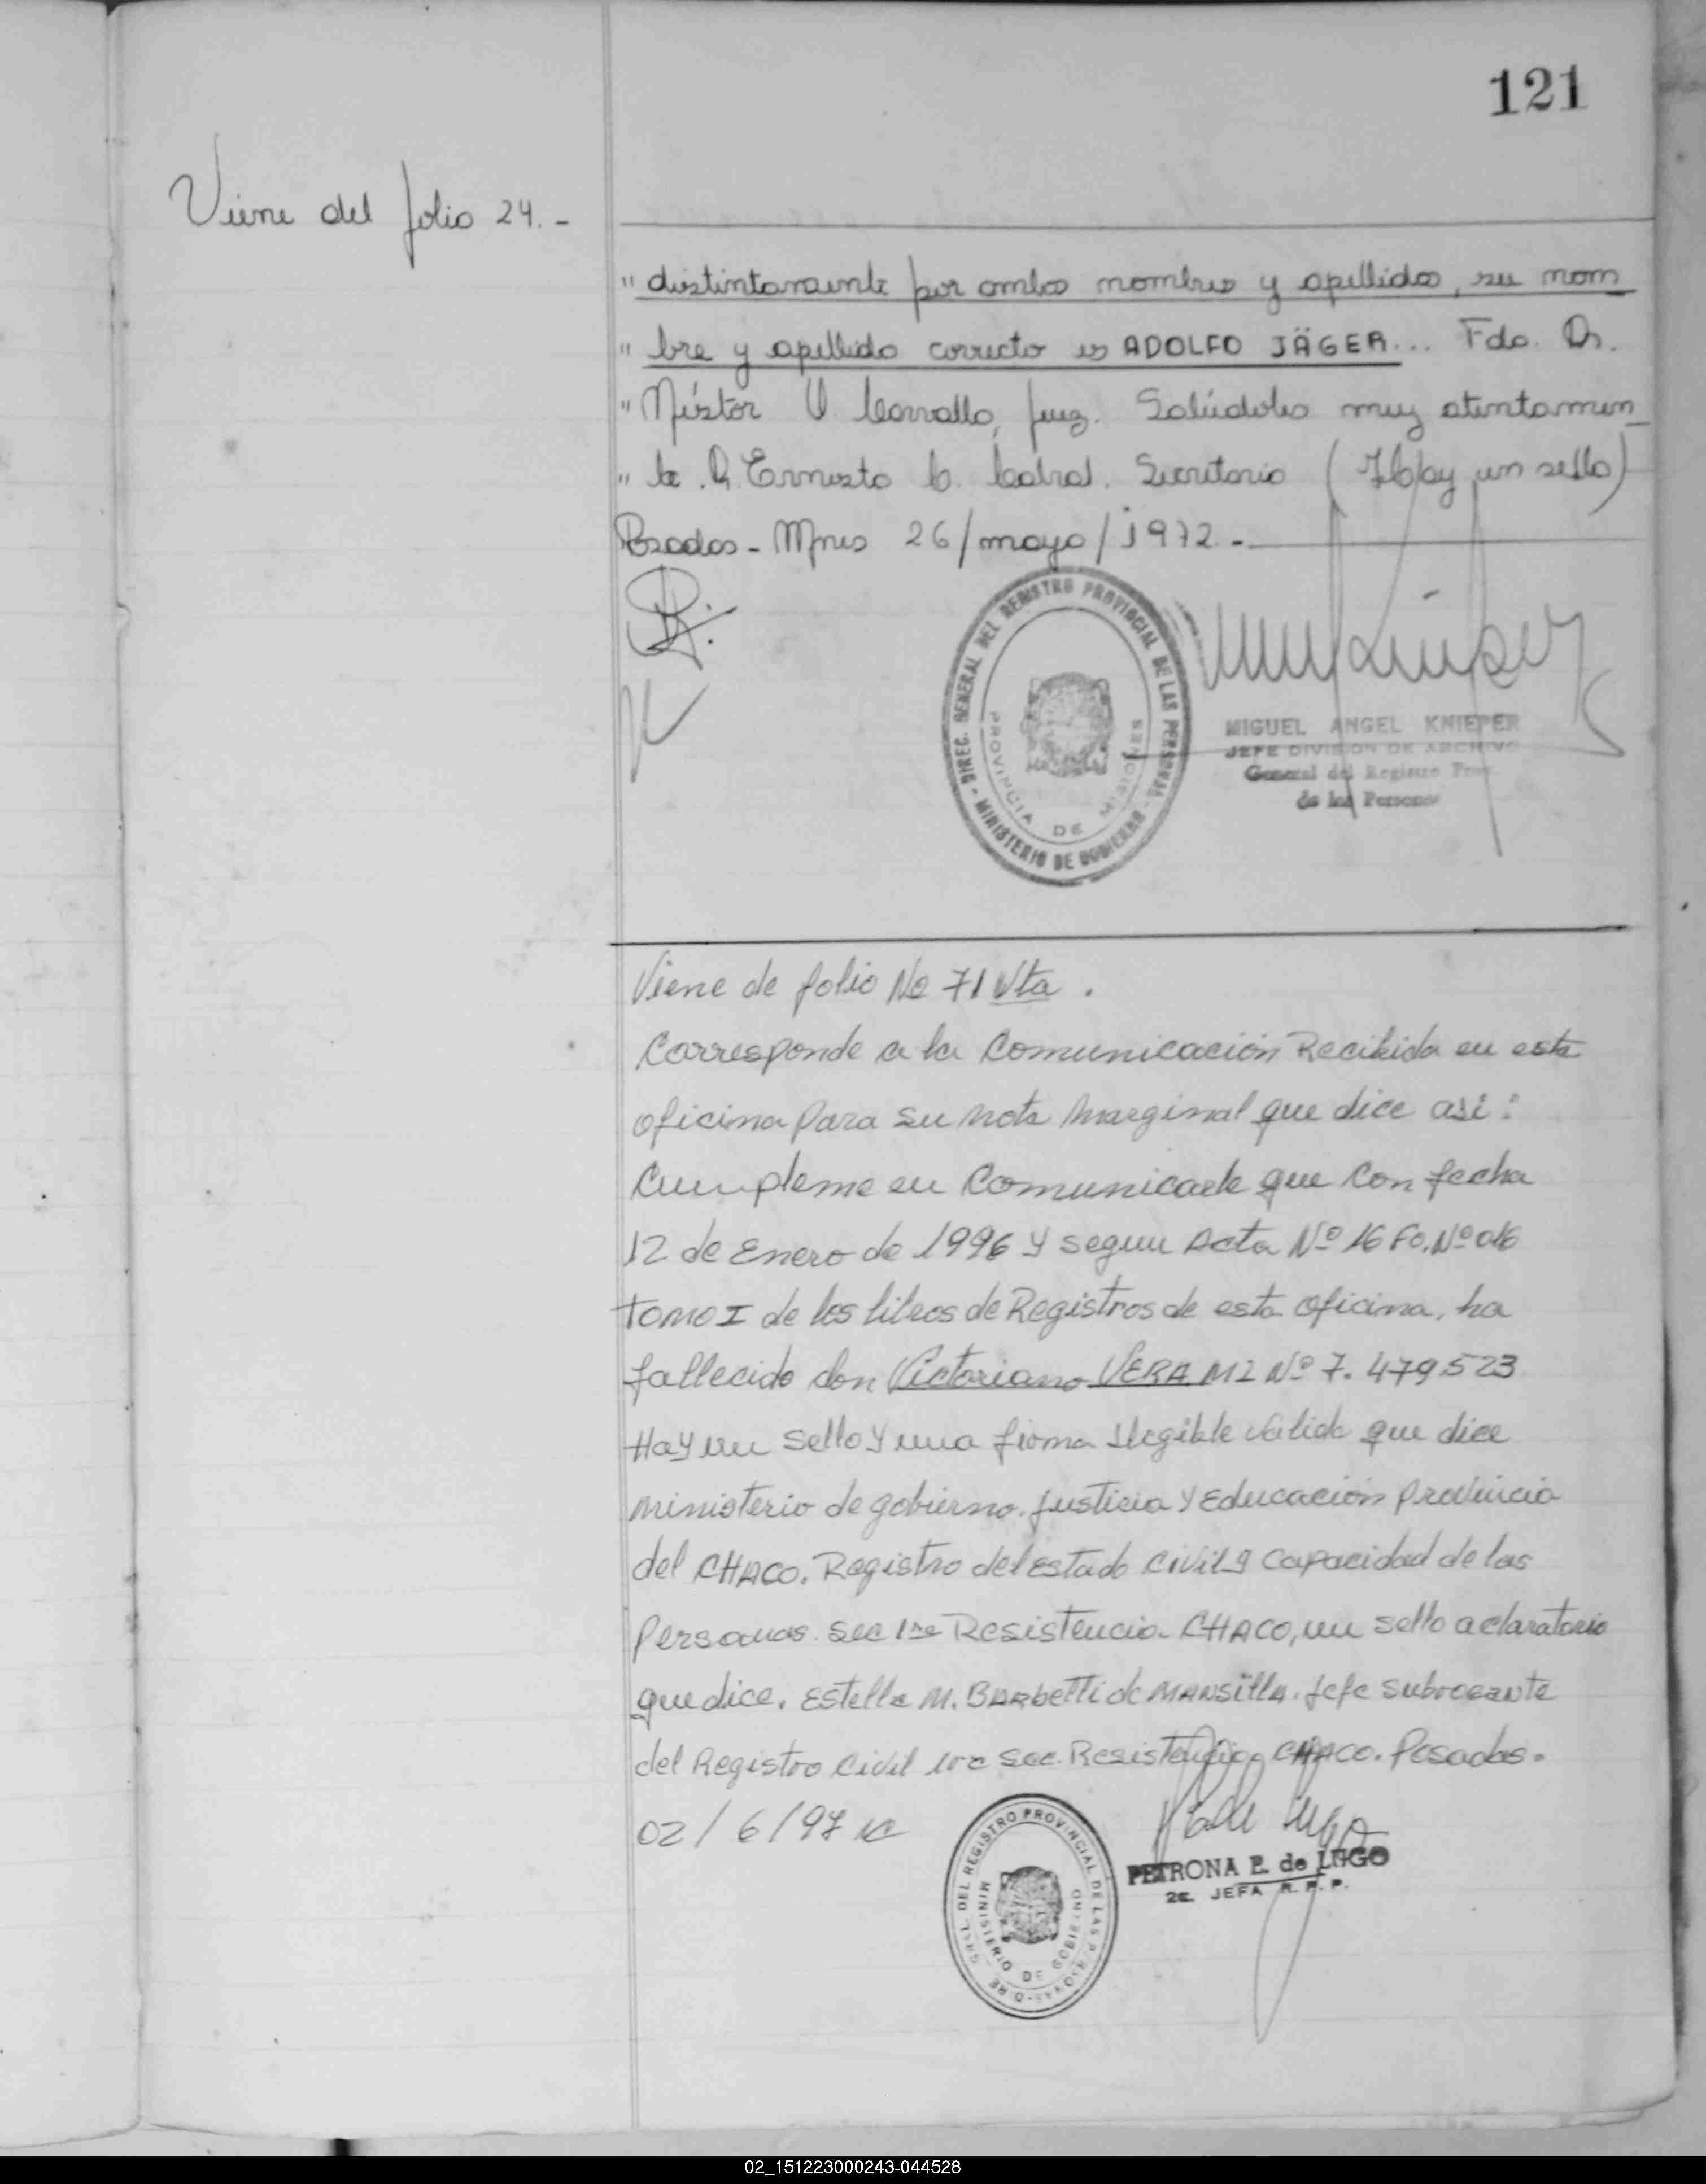 121
Viene del folio 24.-
" distintamente por ambos nombres y apellidos, su nom
" bre y apellido correcto es ADOLFO JÄGER... Fdo. Dr.
" Néstor U Carvallo, Juez. Salúdoles muy atentamen
" te. Dr Ernesto C. Cabral. Secretario (Hay un sello)
Posadas - Mnes 26/mayo/1972.-
DIREC. GENERAL DEL REGISTRO PROVINCIAL DE LAS PERSONAS - MINISTERIO DE GOBIERNO -
PROVINCIA DE MISIONES
MIGUEL ANGEL KNIEPER
JEFE DIVISION DE ARCHIVO
General del Registro Prov.
de las Personas
Viene de folio No 71 Vta.
Corresponde a la Comunicación Recibida en esta
oficina Para su nota Marginal que dice así:
Cumpleme en Comunicarle que Con fecha
12 de Enero de 1996 y segun Acta Nº 16 Fo. Nº 016
TOMO I de los libros de Registros de esta oficina, ha
fallecido don Victoriano VERA MI Nº 7.479523
Hay un sello y una firma Ilegible válida que dice
ministerio de gobierno. Justicia y Educación Provincia
del CHACO. Registro del Estado Civil y Capacidad de las
Personas sec 1ra Resistencia CHACO, un sello aclaratorio
que dice. Estella M. Barbetti de MANSILLA. Jefe subrogante
del Registro Civil 1ra Sec. Resistencia CHACO. Posadas.
02/6/97
GRAL. DEL REGISTRO PROVINCIAL DE LAS PERSONAS - DIRE
MINISTERIO DE GOBIERNO
PETRONA E. de LUGO
2a. JEFA R. P. P.
02_151223000243-044528